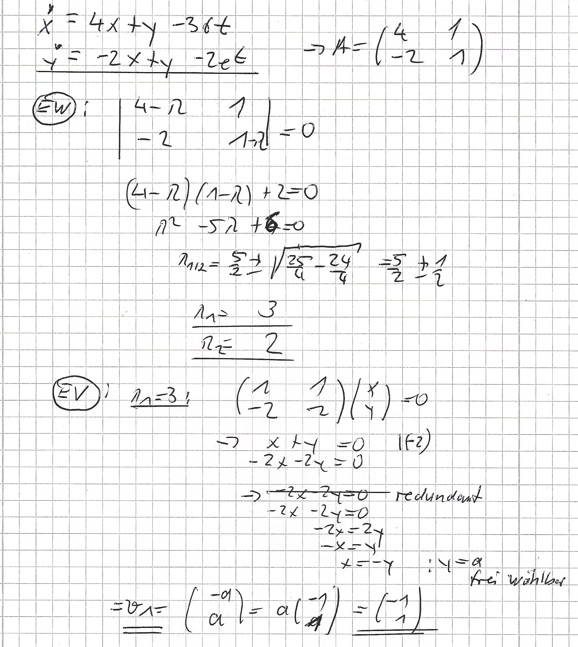 ẋ = 4x + y - 36t → A = (4 1
ẏ = -2x + y - 2et -2 1)
EW: |4-λ 1
-2 1-λ| = 0
(4-λ)(1-λ) + 2 = 0
λ² - 5λ + 6 = 0
λ1/2 = 5/2 ± √(25/4 - 24/4) = 5/2 ± 1/2
λ1 = 3
λ2 = 2
EV: λ1=3: (1 1
-2 -2)(x
y) = 0
→ x + y = 0 |(-2)
-2x - 2y = 0
→ -2x - 2y = 0 redundant
-2x - 2y = 0
-2x = 2y
-x = y
x = -y : y = a
frei wählbar
= v1 = (-a
a) = a(-1
1) = (-1
1)